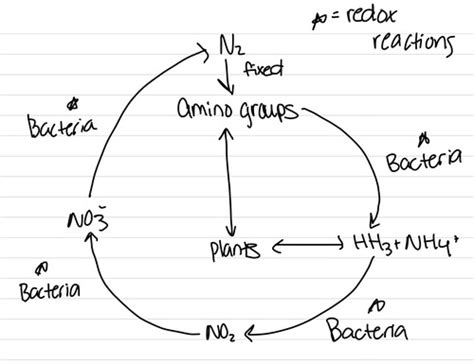 ☆ = redox
reactions
N₂
fixed
amino groups
☆
Bacteria
☆
Bacteria
NO₃⁻
plants
HH₃ + NH₄⁺
☆
Bacteria
NO₂
☆
Bacteria